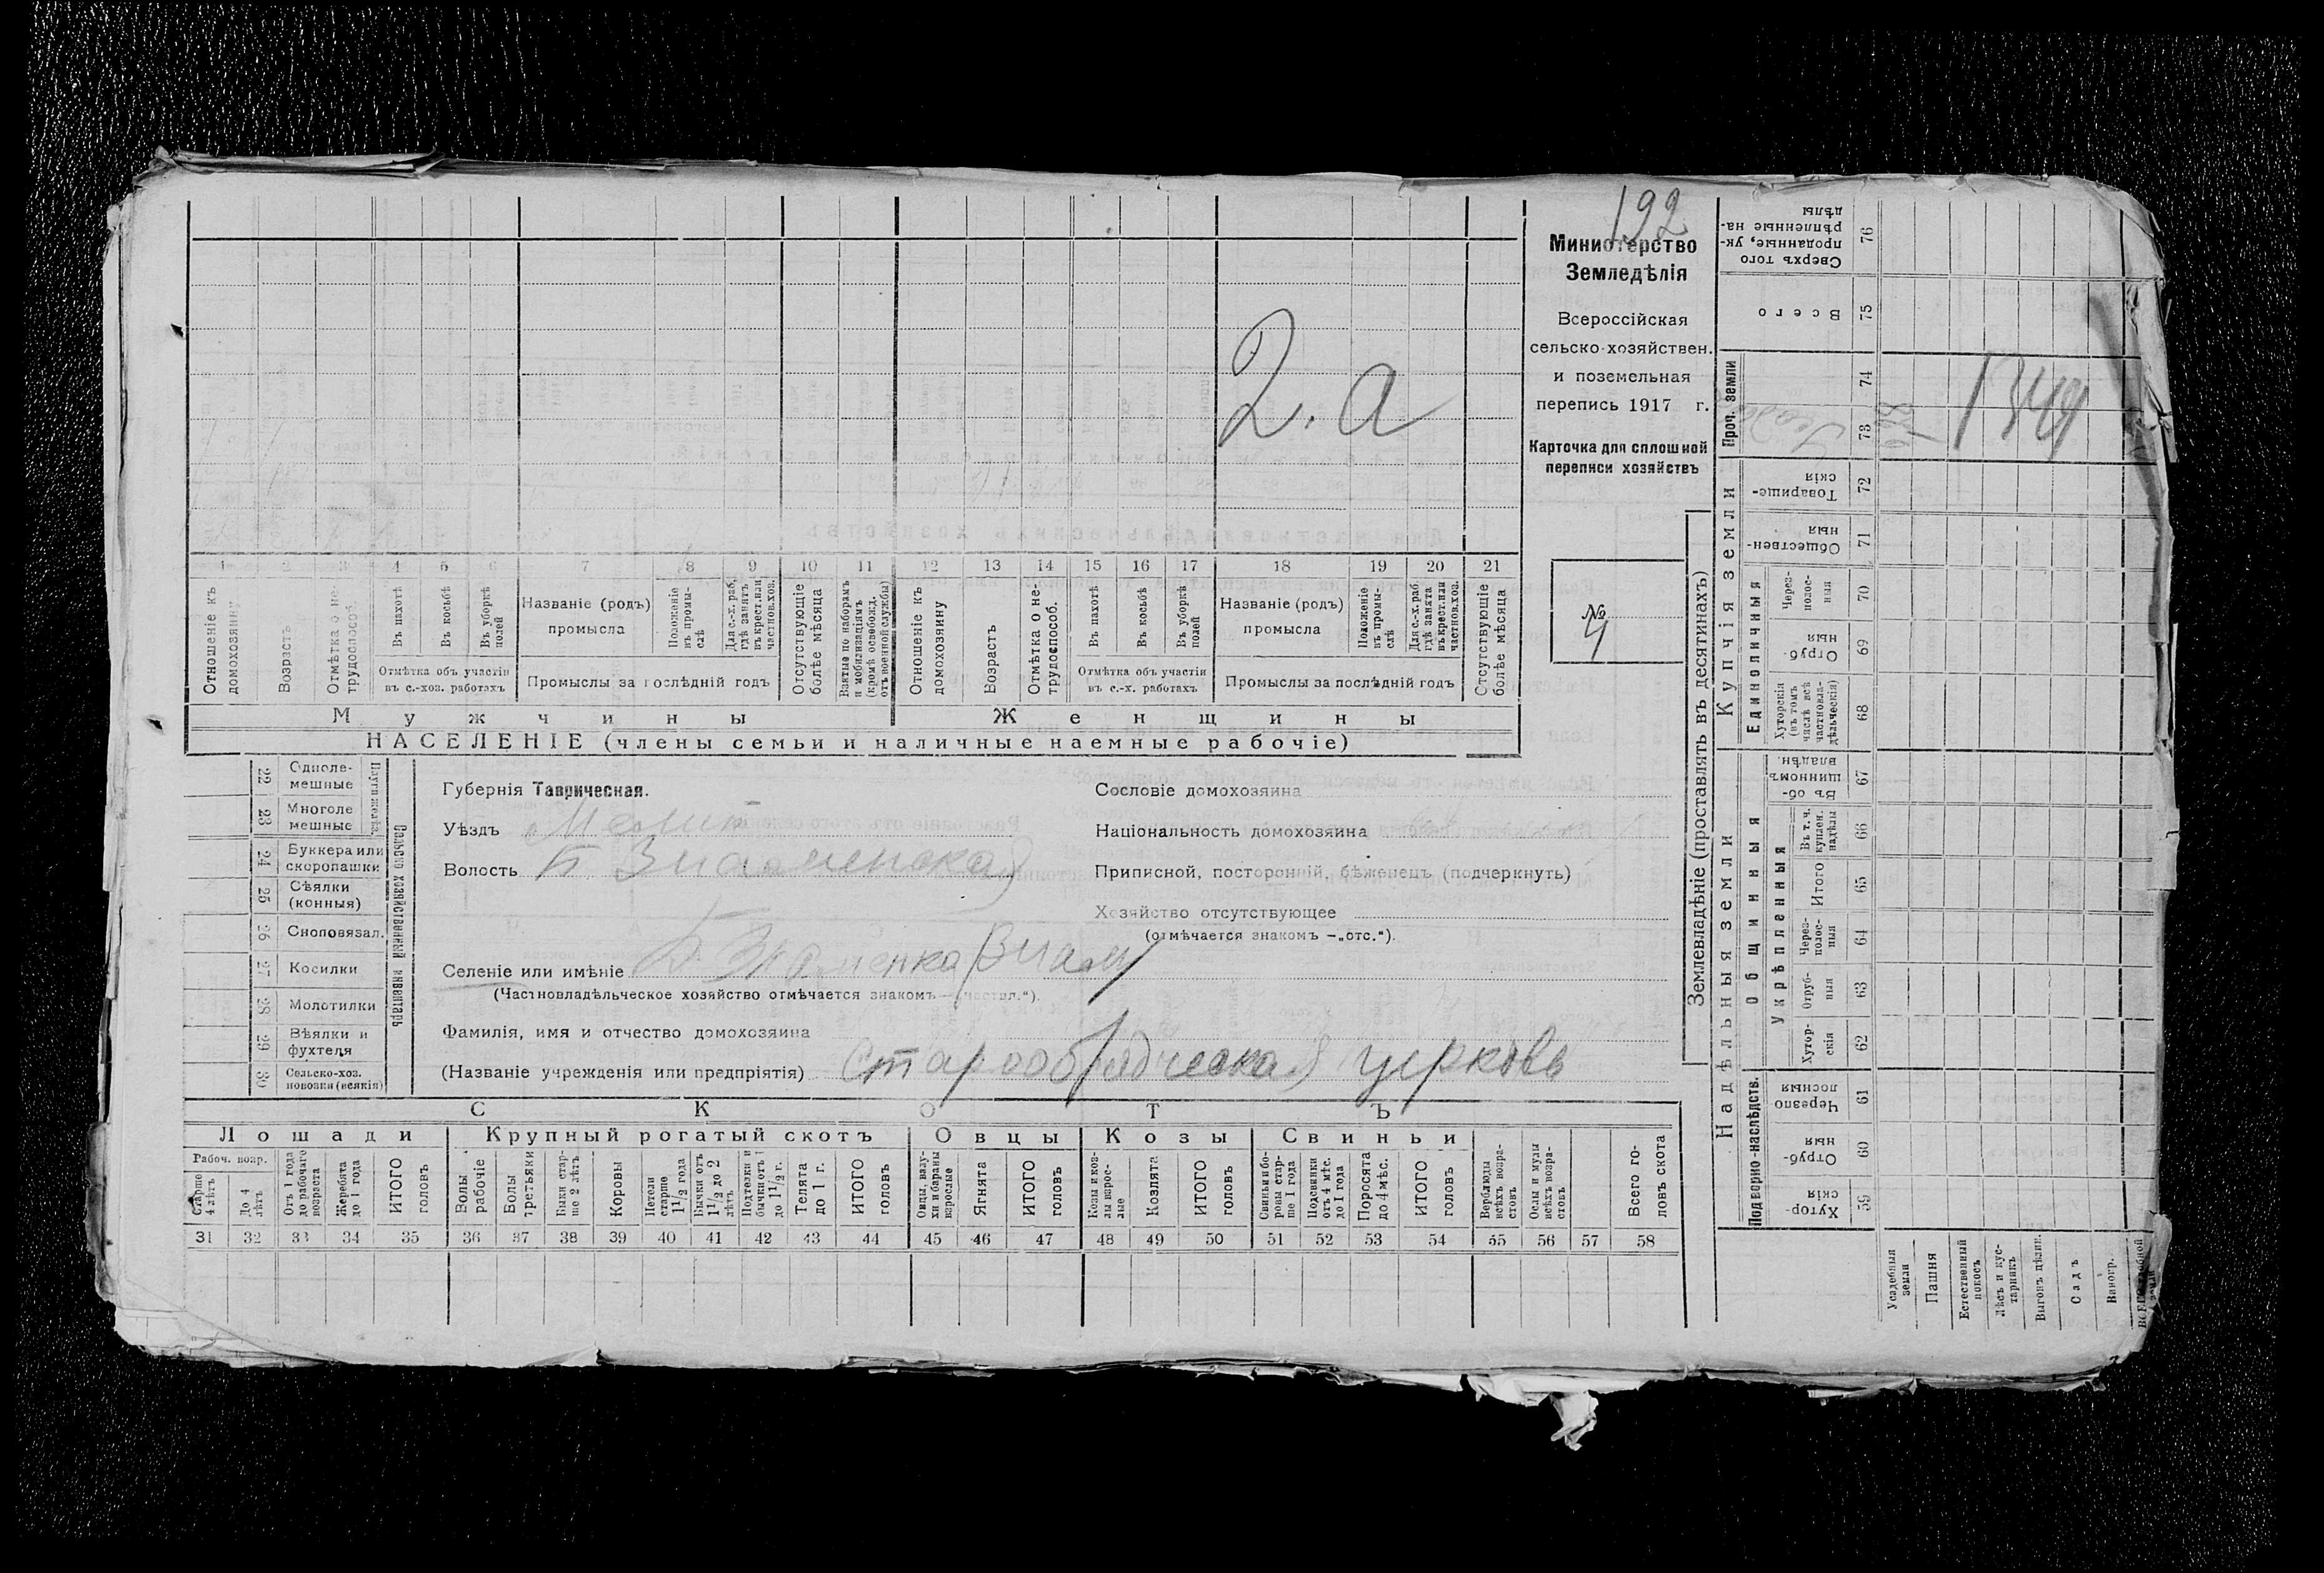 192
Министерство
Земледѣлія
Всероссійская
сельско-хозяйствен.
и поземельная
перепись 1917 г.
Карточка для сплошной
переписи хозяйствъ
№
4
2. а
1 2 3 4 5 6 7 8 9 10 11 12 13 14 15 16 17 18 19 20 21
Отношеніе къ домохозяину
Возрастъ
Отмѣтка о нетрудоспособ.
Въ пахотѣ
Въ косьбѣ
Въ уборкѣ полей
Отмѣтка объ участіи въ с.-хоз. работахъ
Названіе (родъ) промысла
Положеніе въ промыслѣ
Для с.-х. раб. гдѣ занятъ въ крест. или частнов. хоз.
Промыслы за послѣдній годъ
Отсутствующіе болѣе мѣсяца
Взятые по наборамъ и мобилизаціямъ (кромѣ освобожд. отъ военной службы)
Отношеніе къ домохозяину
Возрастъ
Отмѣтка о нетрудоспособ.
Въ пахотѣ
Въ косьбѣ
Въ уборкѣ полей
Отмѣтка объ участіи въ с.-х. работахъ
Названіе (родъ) промысла
Положеніе въ промыслѣ
Для с.-х. раб. гдѣ занята въ крест. или частнов. хоз.
Промыслы за послѣдній годъ
Отсутствующіе болѣе мѣсяца
Мужчины
Женщины
НАСЕЛЕНІЕ (члены семьи и наличные наемные рабочіе)
22 Однолемешные
23 Многолемешные
24 Буккера или скоропашки
25 Сѣялки (конныя)
26 Сноповязал.
27 Косилки
28 Молотилки
29 Вѣялки и фухтеля
30 Сельско-хоз. повозки (всякія)
Сельско хозяйственный инвентарь
Губернія Таврическая.
Уѣздъ Мелит
Волость Б Знаменская
Селеніе или имѣніе Б. Знаменка
(Частновладѣльческое хозяйство отмѣчается знакомъ — „частвл.“).
Фамилія, имя и отчество домохозяина
(Названіе учрежденія или предпріятія) Старообрядческая церковь
Сословіе домохозяина
Національность домохозяина
Приписной, посторонній, бѣженецъ (подчеркнуть)
Хозяйство отсутствующее
(отмѣчается знакомъ —„отс.“).
СКОТЪ
Лошади
Крупный рогатый скотъ
Овцы
Козы
Свиньи
Рабоч. возр.
Старше 4 лѣтъ
До 4 лѣтъ
Отъ 1 года до рабочаго возраста
Жеребята до 1 года
ИТОГО головъ
Волы рабочіе
Волы третьяки
Быки старше 2 лѣтъ
Коровы
Нетели старше 1 1/2 года
Бычки отъ 1 1/2 до 2 лѣтъ
Подтелки и бычки отъ 1 до 1 1/2 г.
Телята до 1 г.
ИТОГО головъ
Овцы, валухи и бараны взрослые
Ягнята
ИТОГО головъ
Козы и козлы взрослые
Козлята
ИТОГО головъ
Свиньи и боровы старше 1 года
Подсвинки отъ 4 мѣс. до 1 года
Поросята до 4 мѣс.
ИТОГО головъ
Верблюды всѣхъ возрастовъ
Ослы и мулы всѣхъ возрастовъ
Всего головъ скота
31 32 33 34 35 36 37 38 39 40 41 42 43 44 45 46 47 48 49 50 51 52 53 54 55 56 57 58
Землевладѣніе (проставлять въ десятинахъ)
Купчія земли
Надѣльныя земли
Сверхъ того проданные, укрѣпленные надѣлы 76
Всего 75
Проч. земли 74
73
1349
Товарищескія 72
Общественныя 71
Единоличныя
Черезполосныя 70
Отрубныя 69
Хуторскія (въ томъ числѣ всѣ частновладѣльческія) 68
Общинныя
Въ общинномъ владѣн. 67
Укрѣпленныя
Въ т. ч. куплен. надѣлы 66
Итого 65
Черезполосныя 64
Отрубныя 63
Хуторскія 62
Подворно-наслѣдств.
Черезполосныя 61
Отрубныя 60
Хуторскія 59
Усадебныя земли
Пашня
Естественный покосъ
Лѣсъ и кустарникъ
Выгонъ цѣлин.
Садъ
Виногр.